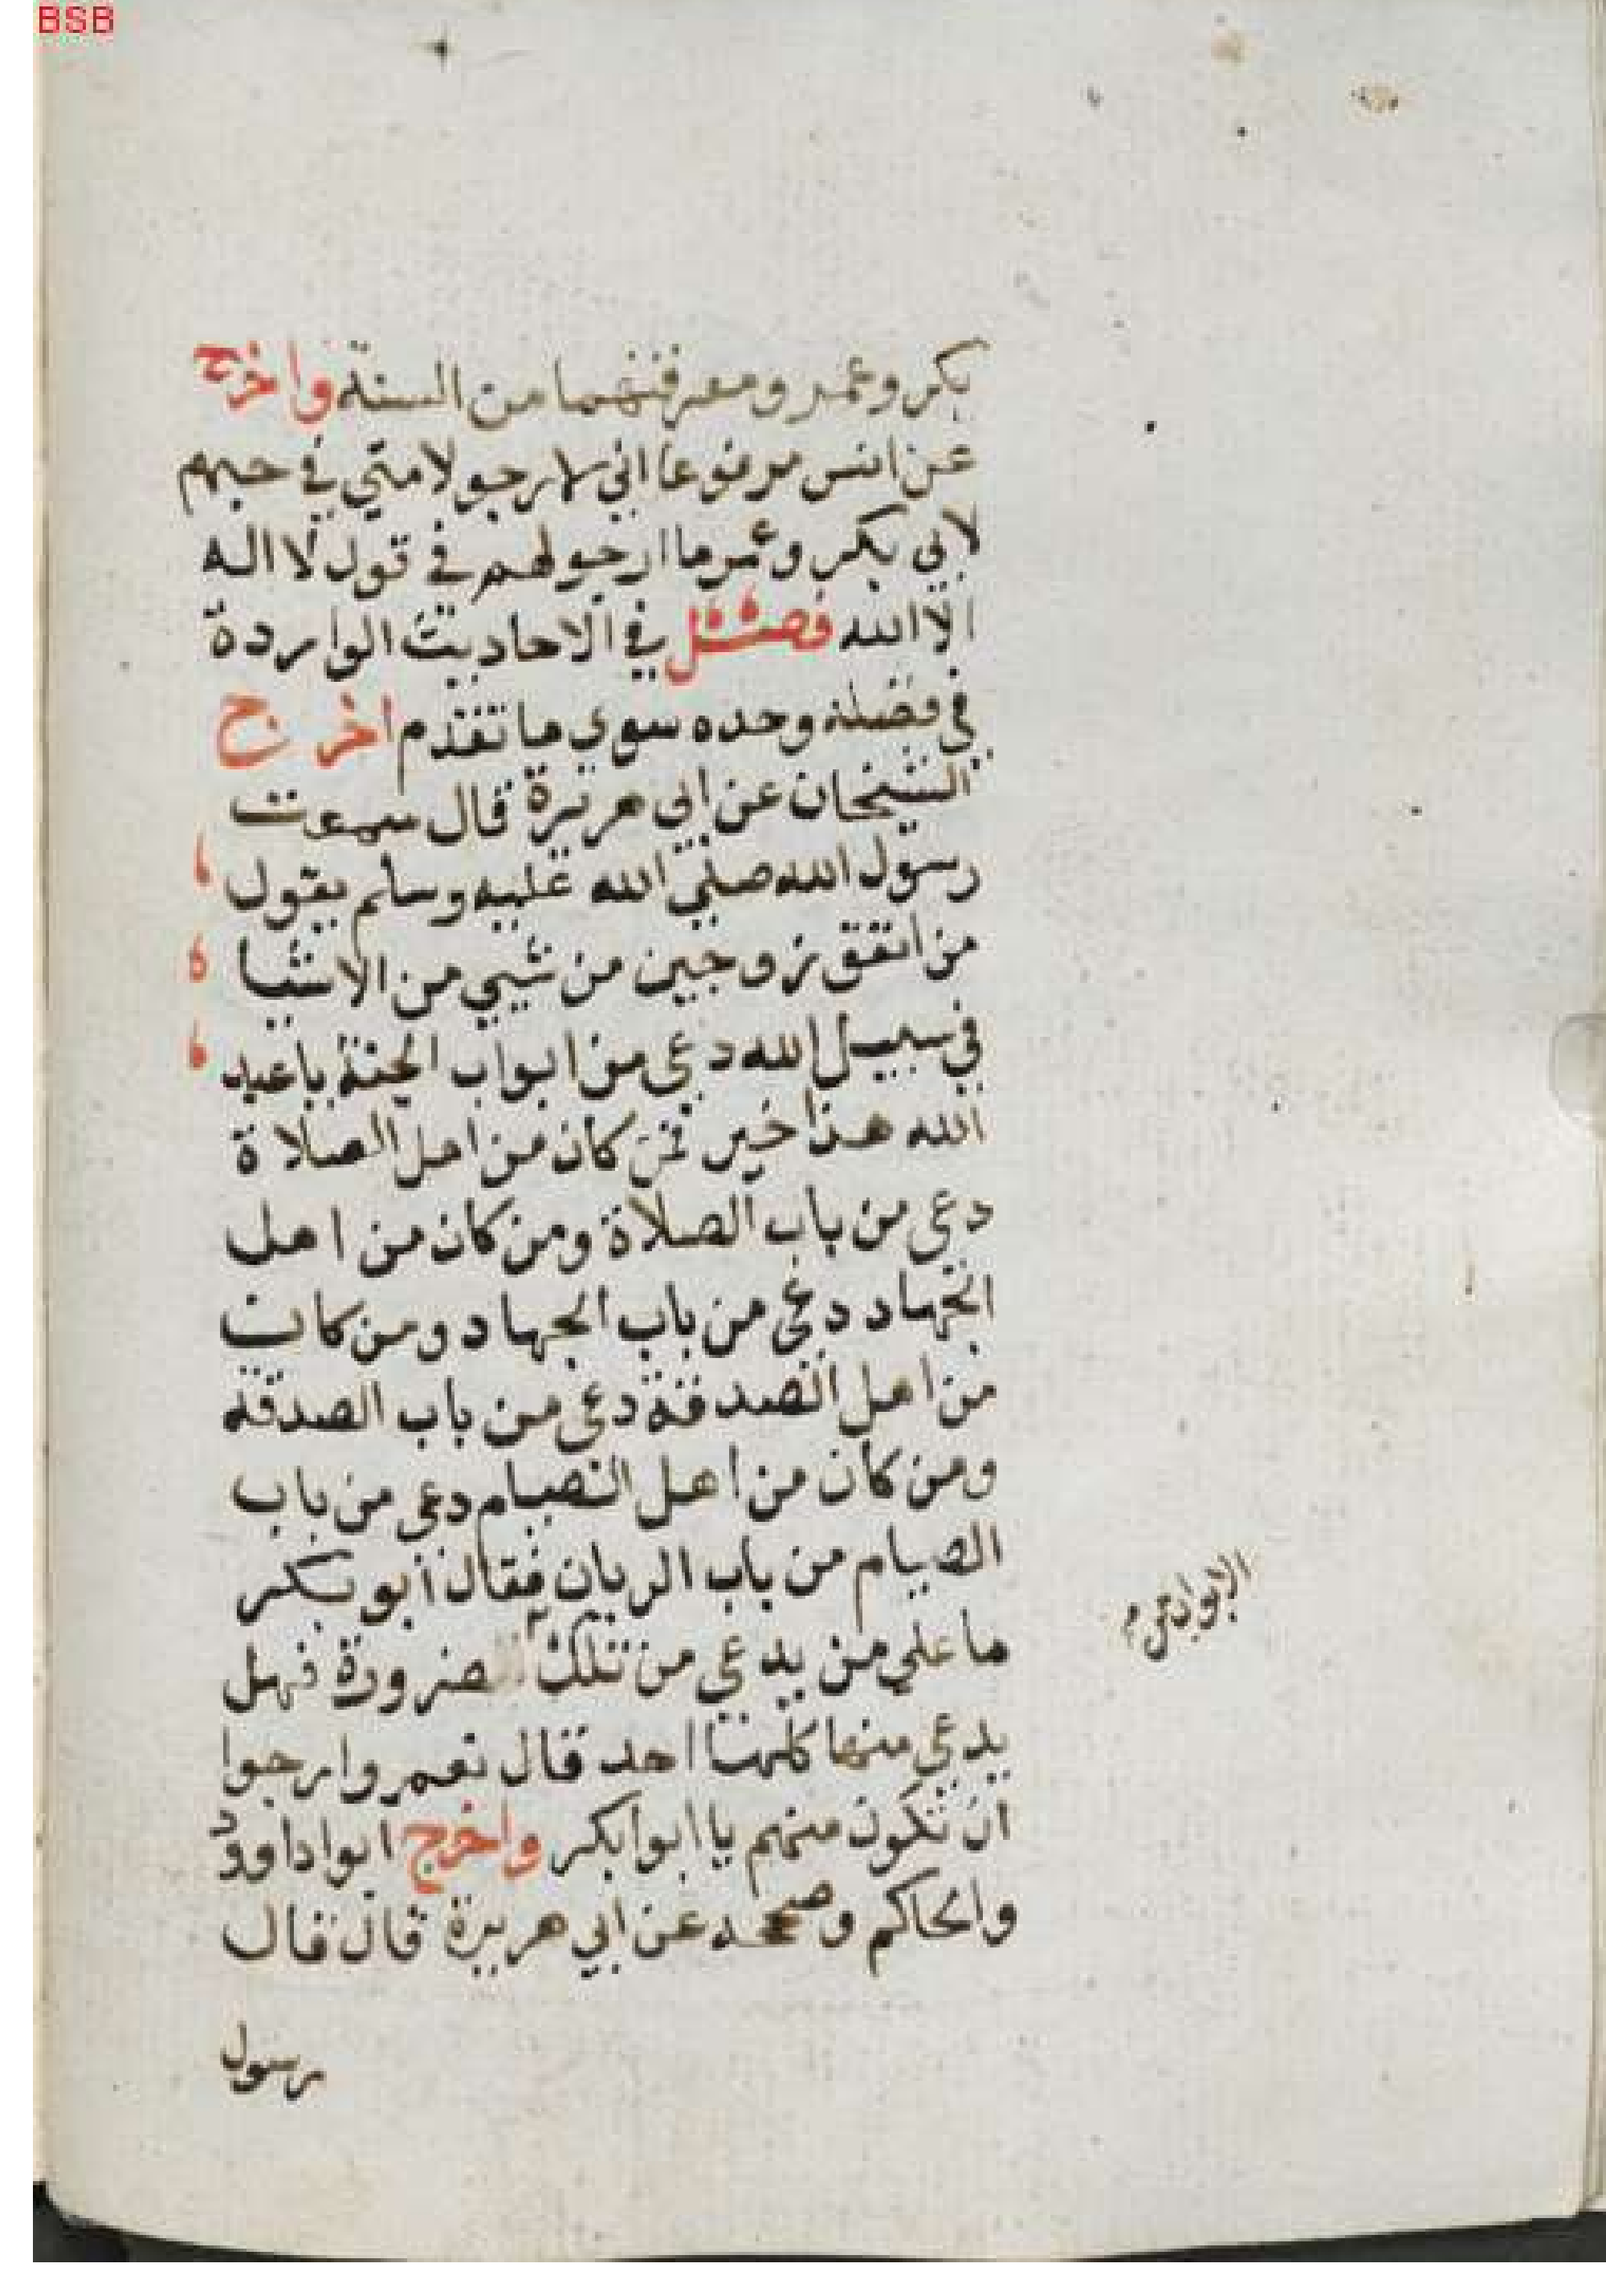 BSB
بكر وعمر ومعرفتهما من السنة واخرج
عن انس مرفوعا اني لارجو لامتي في حبهم
لابي بكر وعمر ما ارجو لهم في قول لا اله
الا الله فصل في الاحاديث الواردة
في فضله وحده سوي ما تقدم اخرج
الشيخان عن ابي هريرة قال سمعت
رسول الله صلي الله عليه وسلم يقول
من انفق زوجين من شيي من الاشيا
في سبيل الله دعي من ابواب الجنة باعبد
الله هذا خير فمن كان من اهل الصلاة
دعي من باب الصلاة ومن كان من اهل
الجهاد دعي من باب الجهاد ومن كان
من اهل الصدقة دعي من باب الصدقة
ومن كان من اهل الصيام دعي من باب
الصيام من باب الريان فقال أبو بكر
ما علي من يدعي من تلك ضرورة فهل
يدعي منها كلها احد قال نعم وارجوا
ان تكون منهم يا ابوابكر واخرج ابوا داوود
والحاكم وصححه عن ابي هريرة قال قال
رسول